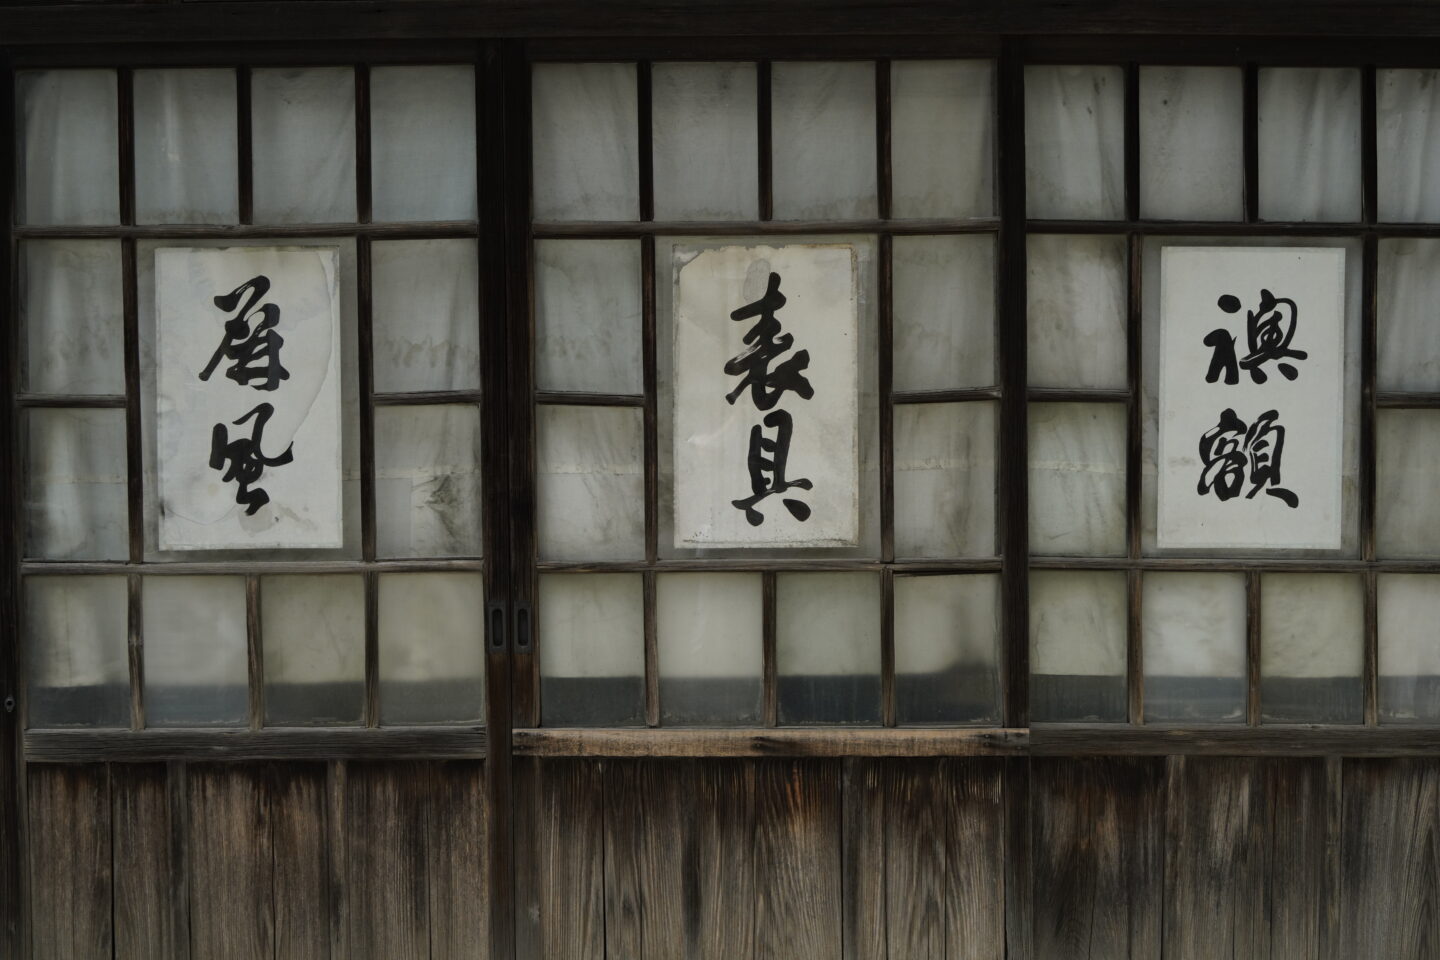 襖額
表具
屏風